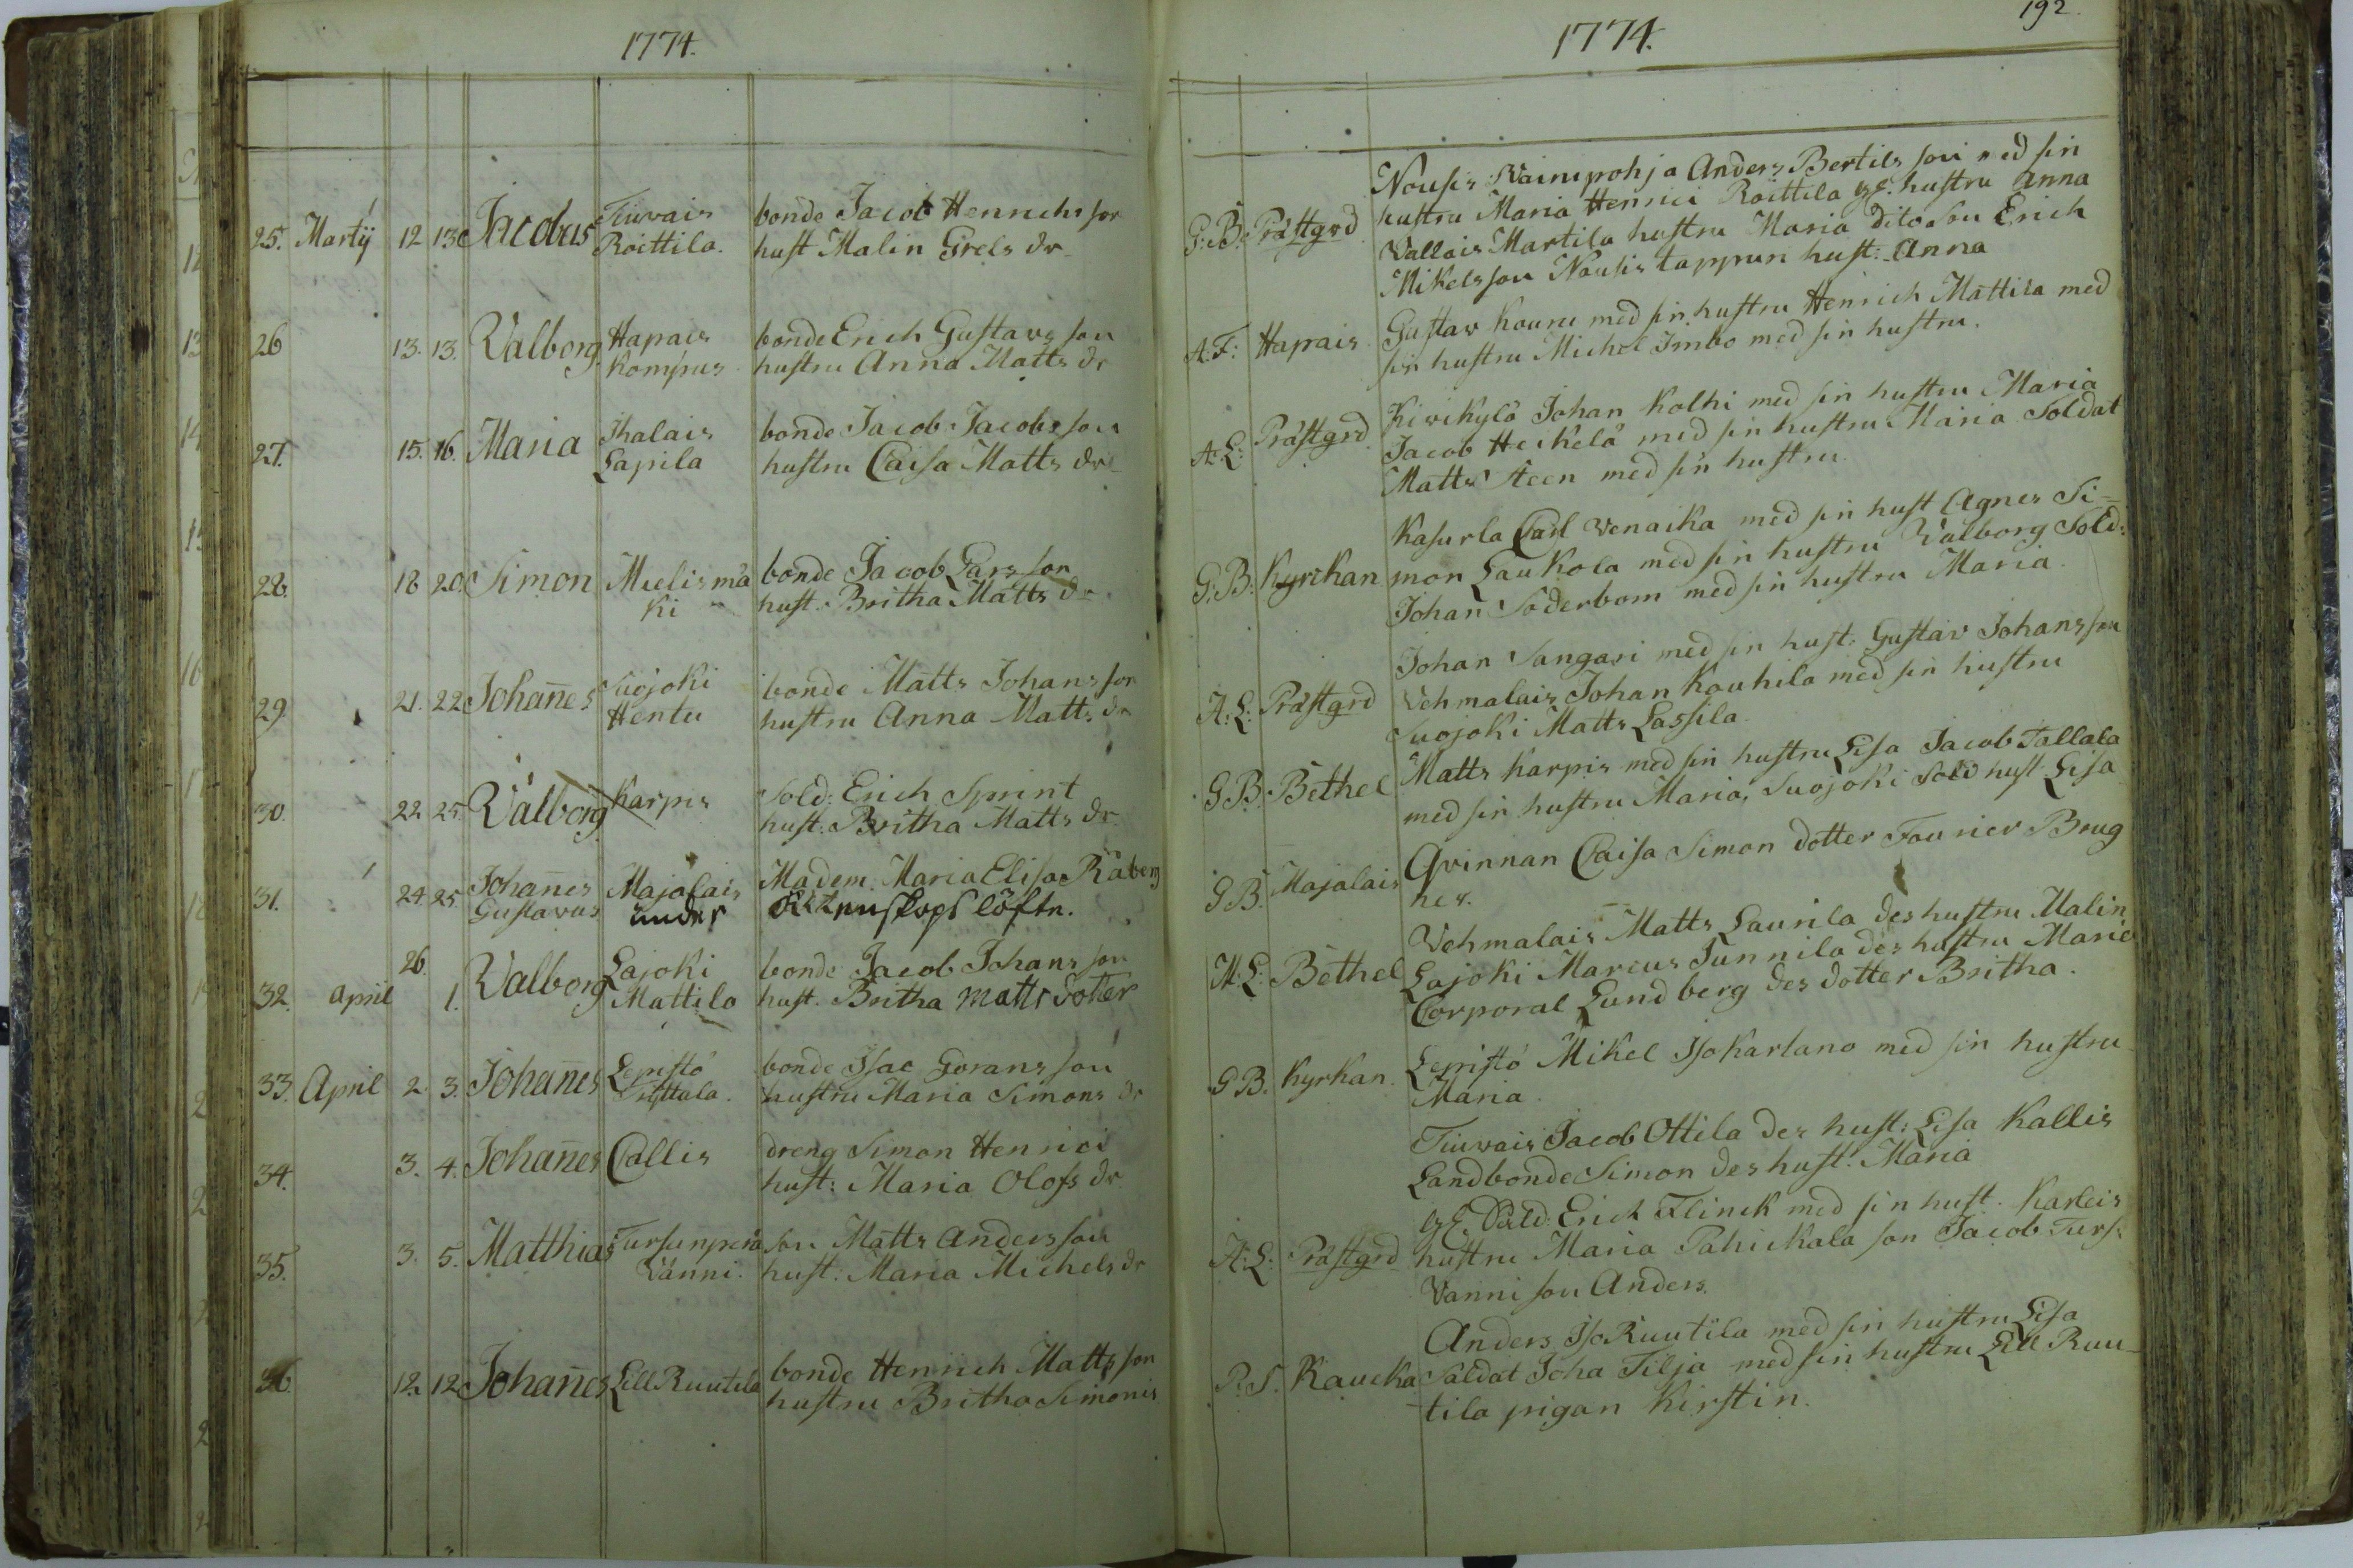 1774.
25. Martij 12 13 Jacobus Tiuvais bonde Jacob Henrichs son
Roittila. hust Malin Grels dr
26 13. 13. Valborg Hapais bonde Erich Gustavs son
Kompus hustru Anna Matts dr
27. 15. 16. Maria Ihalais bonde Jacob Jacobs son
Lapila hustru Caisa Matts dr
28. 18 20. Simon Mielismä bonde Jacob Lars son
ki hust. Britha Matts dr
29 21. 22 Johan̄es Suojoki bonde Matts Johans son
Hentu hustru Anna Matts dr
30. 22 25. Valborg Karpis Sold: Erich Sprint
hust. Britha Matts dr
31. 24. 25 Johan̄es Majalais Madem. Maria Elisa Råberg
Gustavus under
26.
32. April 1. Valborg Lajoki bonde Jacob Johans son
Mattila hust. Britha Matts doter
33. April 2. 3. Johan̄es Lepistö bonde Isac Görans son
hustru Maria Simons dr
34. 3. 4. Johan̄es Callis dreng Simon Henrici
hust: Maria Olofs dr
35. 3. 5. Matthias Tursunperä son Matts Anders son
Vänni. hust: Maria Michels dr
36. 12. 12 Johan̄es Lill Ruutila bonde Henrich Matts son
hustru Britha Simonis
1774. 192.
Nousis Wainipohja Anders Bertils son med sin
G:B: Prästgrd hustru Maria Henrici Roittila hustru Anna
Vallais Martila hustru Maria dito son Erich
Mikels son Nousis tappun hust: Anna
A:F: Hapais Gustav Kouru med sin hustru Henrich Mattila med
sin hustru Michel Imbo med sin hustru.
Kivikylä Johan Kolhi med sin hustru Maria
A:L: Prästgrd Jacob Heikelä med sin hustru Maria Soldat
Matts Steen med sin hustru
Kasurla Carl Venaika med sin hust Agnes Si-
G:B: Kyrckan mon Laukola med sin hustru Valborg Sold:
Johan Söderbom med sin hustru Maria.
Johan Sangari med sin hust: Gustav Johans son
A:L: Prästgrd Vehmalais Johan Kouhila med sin hustru
Suojoki Matts Lassila.
G B: Bethel Matts Karpis med sin hustru Lisa Jacob Tallala
med sin hustru Maria, Suojoki Sold hust Lisa
G B. Majalais Qvinnan Caisa Simon dotter Fourier Brug
ner.
Vehmalais Matts Laurila des hustru Malin
A:L: Bethel Lajoki Marcus Tunnila des hustru Maria
Corporal Lundberg des dotter Britha.
G B. Kyrkan. Lepistö Mikel Isokartano med sin hustru
Maria.
Tiuvais Jacob Ottila des hust: Lisa Kallis
Landbonde Simon des hust. Maria
Erich Flinck med sin hust. Karleis
A:L: Prästgrd hustru Maria Pahickala son Jacob Turs:
Vänni son Anders.
Anders Iso Ruutila med sin hustru Lisa
P:S. Kaucka Soldat Joha Tilja med sin hustru Lill Ruu-
tila pigan Kirstin.